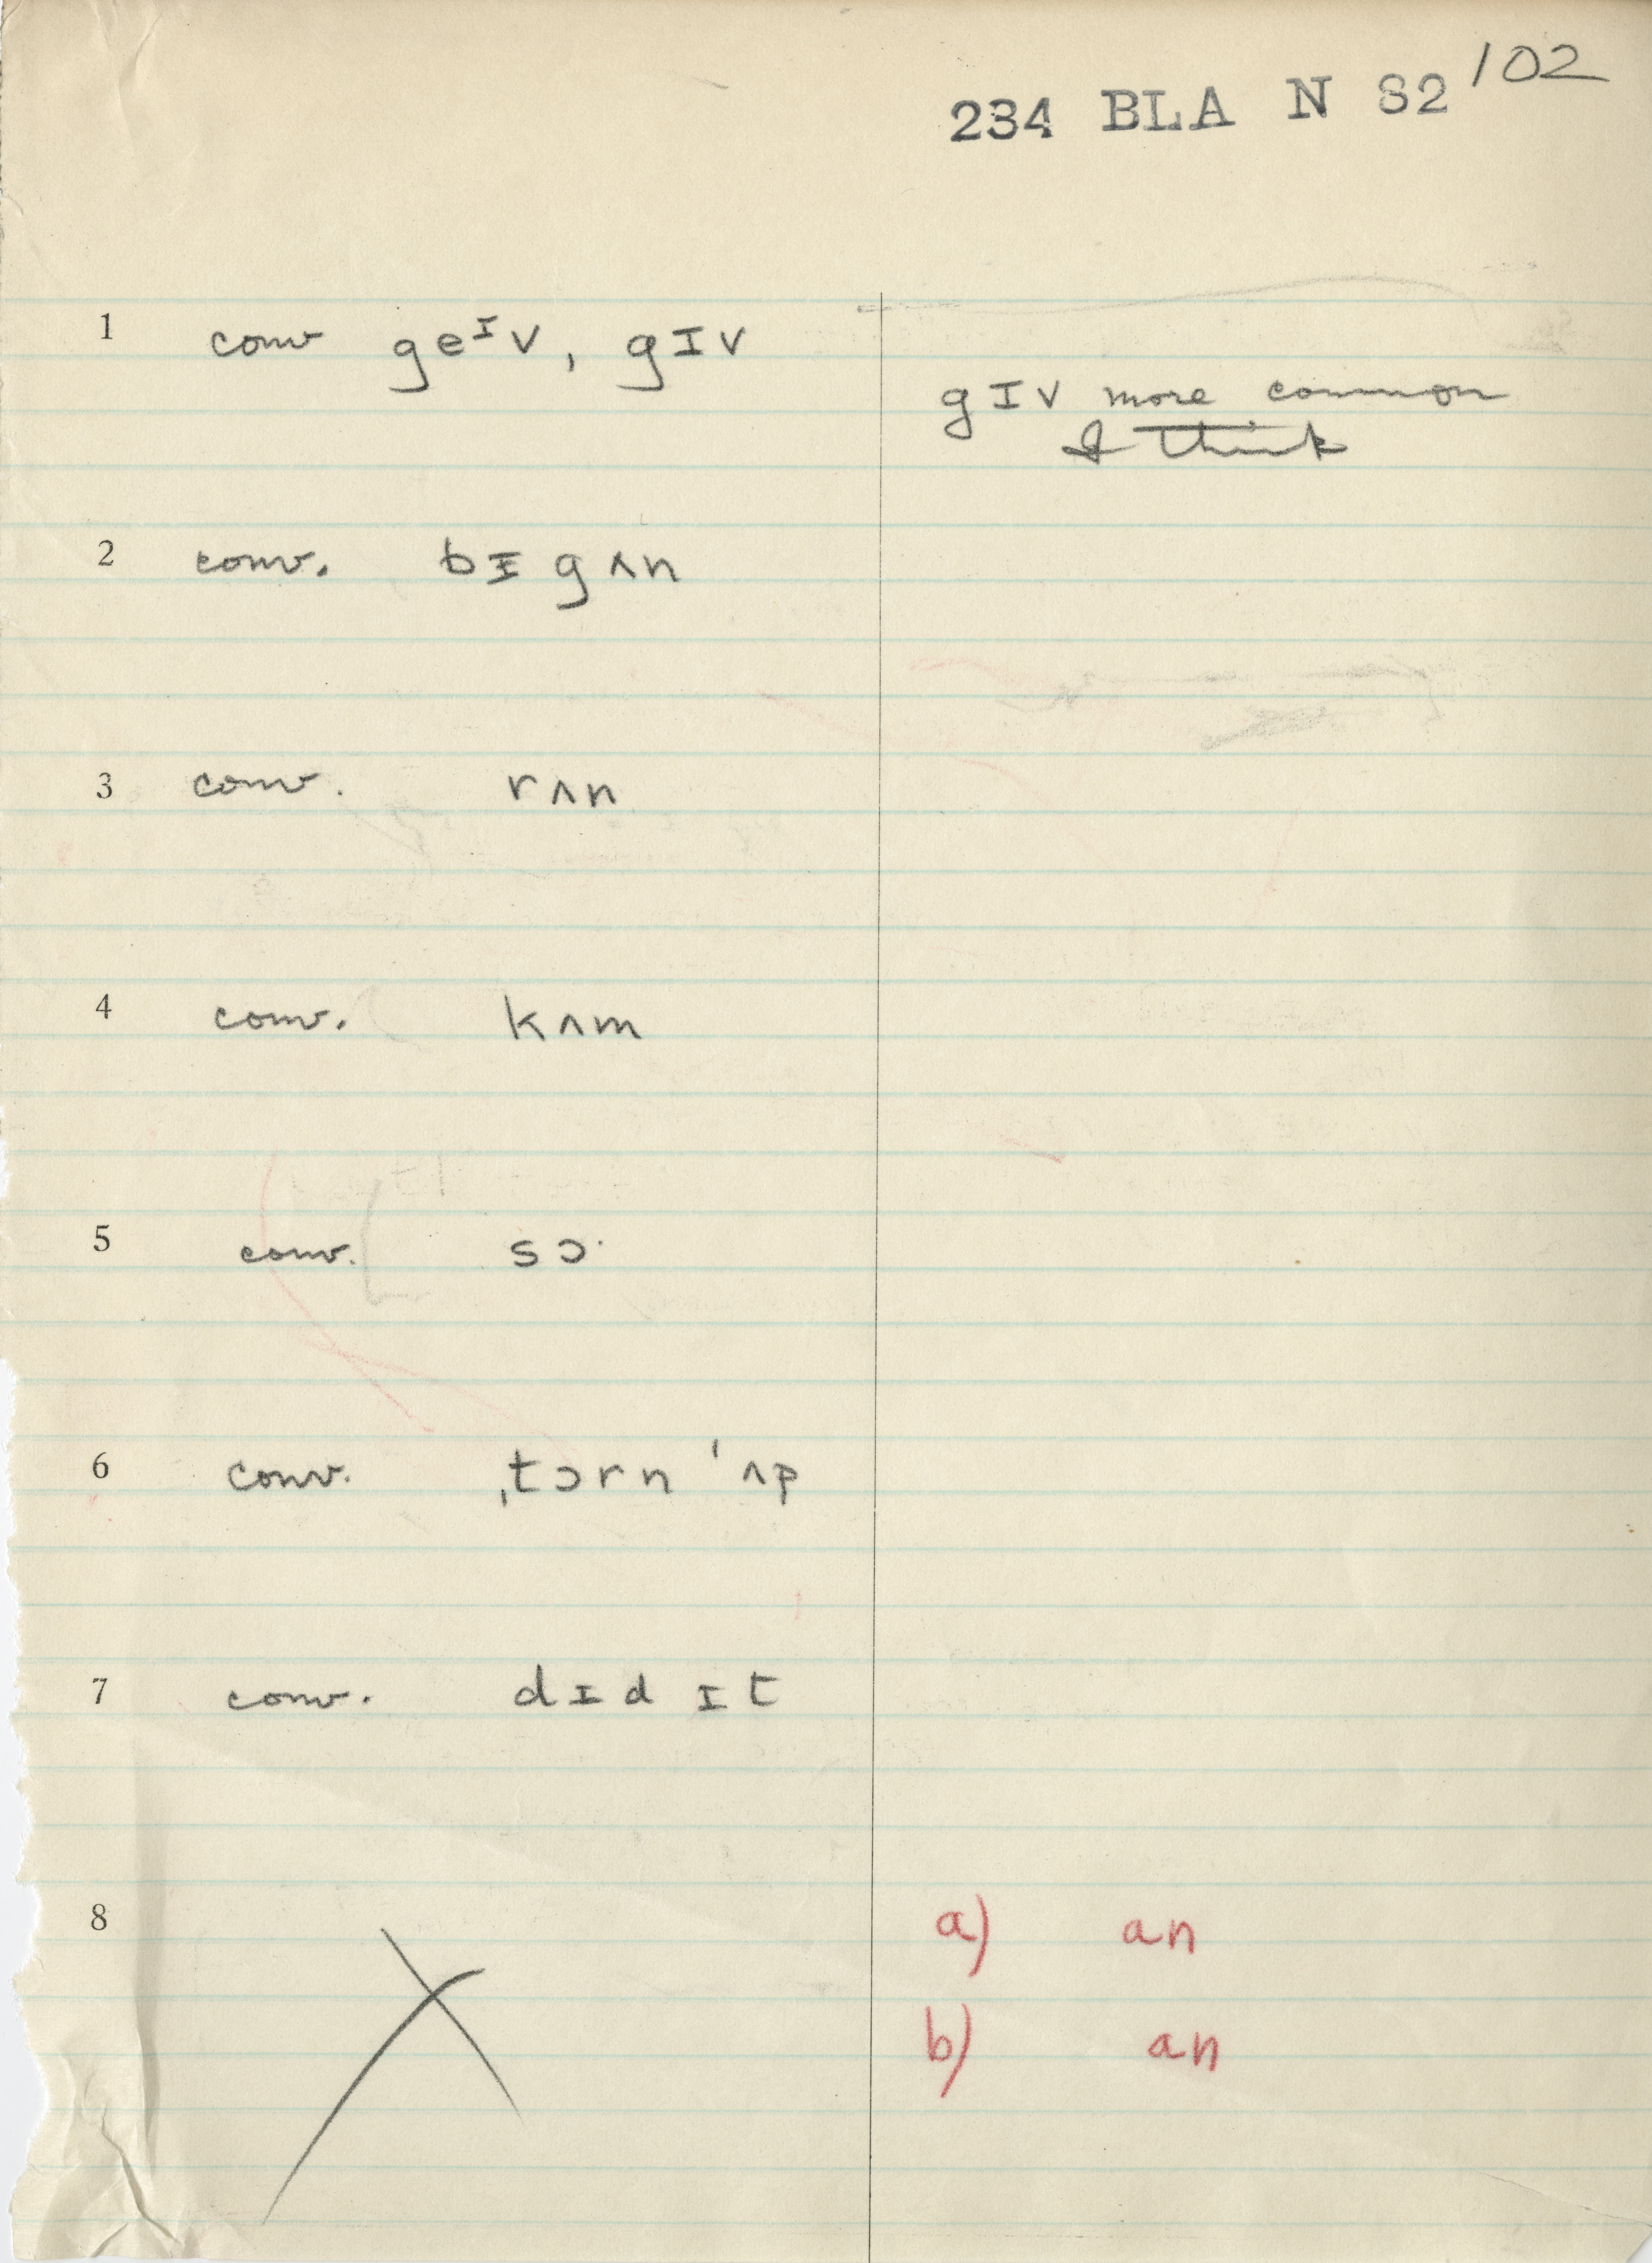 102
234 BLA N 82
1 conv geᴵv, gɪv
gɪv more common
I think
2 conv. bɪgʌn
3 conv. rʌn
4 conv. kʌm
5 conv. sɔ·
6 conv. ˌtɔrn ˈʌp
7 conv. dɪd ɪt
8
a) an
b) an